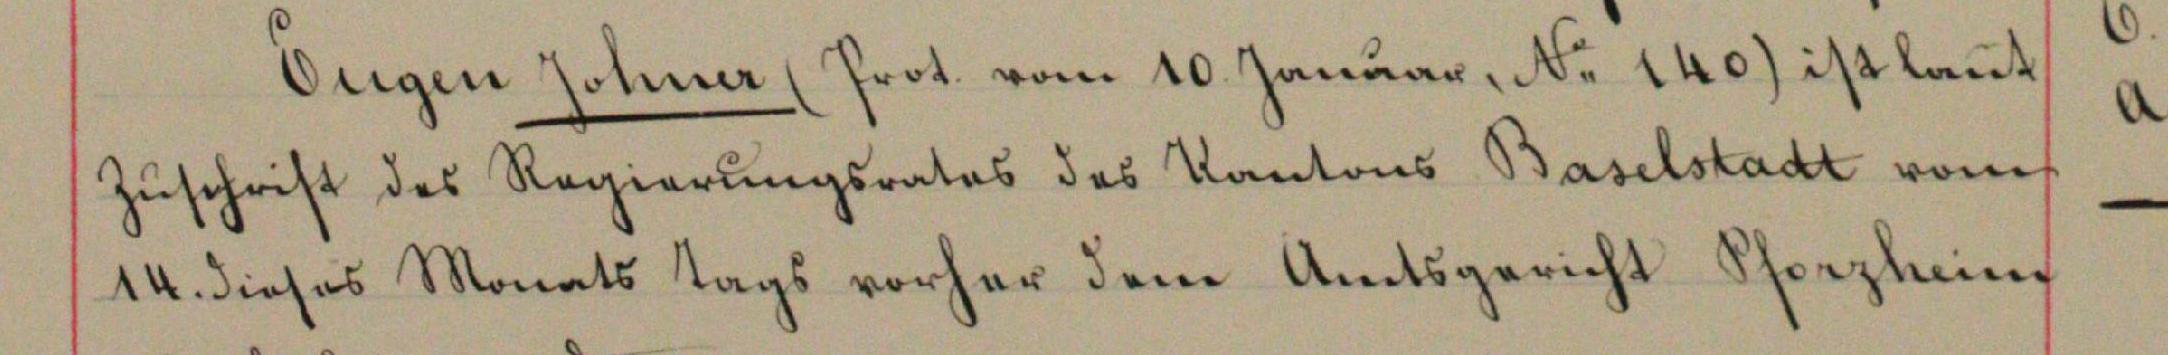 Eugen Johner (Prot. vom 10. Januar, No 140) ist laut
Zuschrift des Regierungsrates des Kantons Baselstadt vom
14. dieses Monats tags vorher dem Amtsgericht Pforzheim